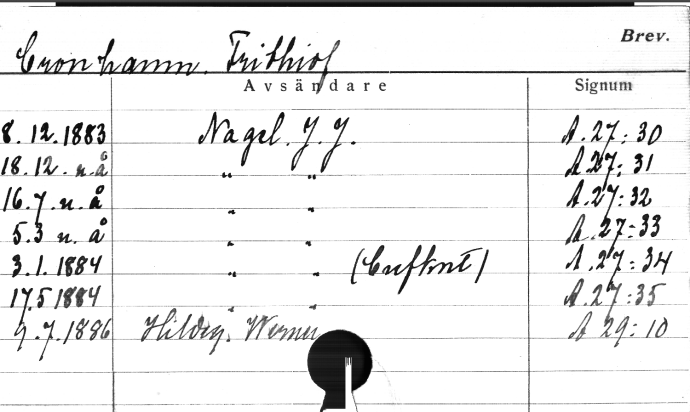 Brev.
Cronhamn. Frithiof
Avsändare Signum
8.12.1883 Nagel. J. J. A.27:30
18.12. u.å " " A.27:31
16.7. u. å " " A.27:32
5.3 u. å " " A.27:33
3.1.1884 " " A.27:34
17.5 1884 " " A.27:35
9.7.1886 Hildeg. Werner A 29:10